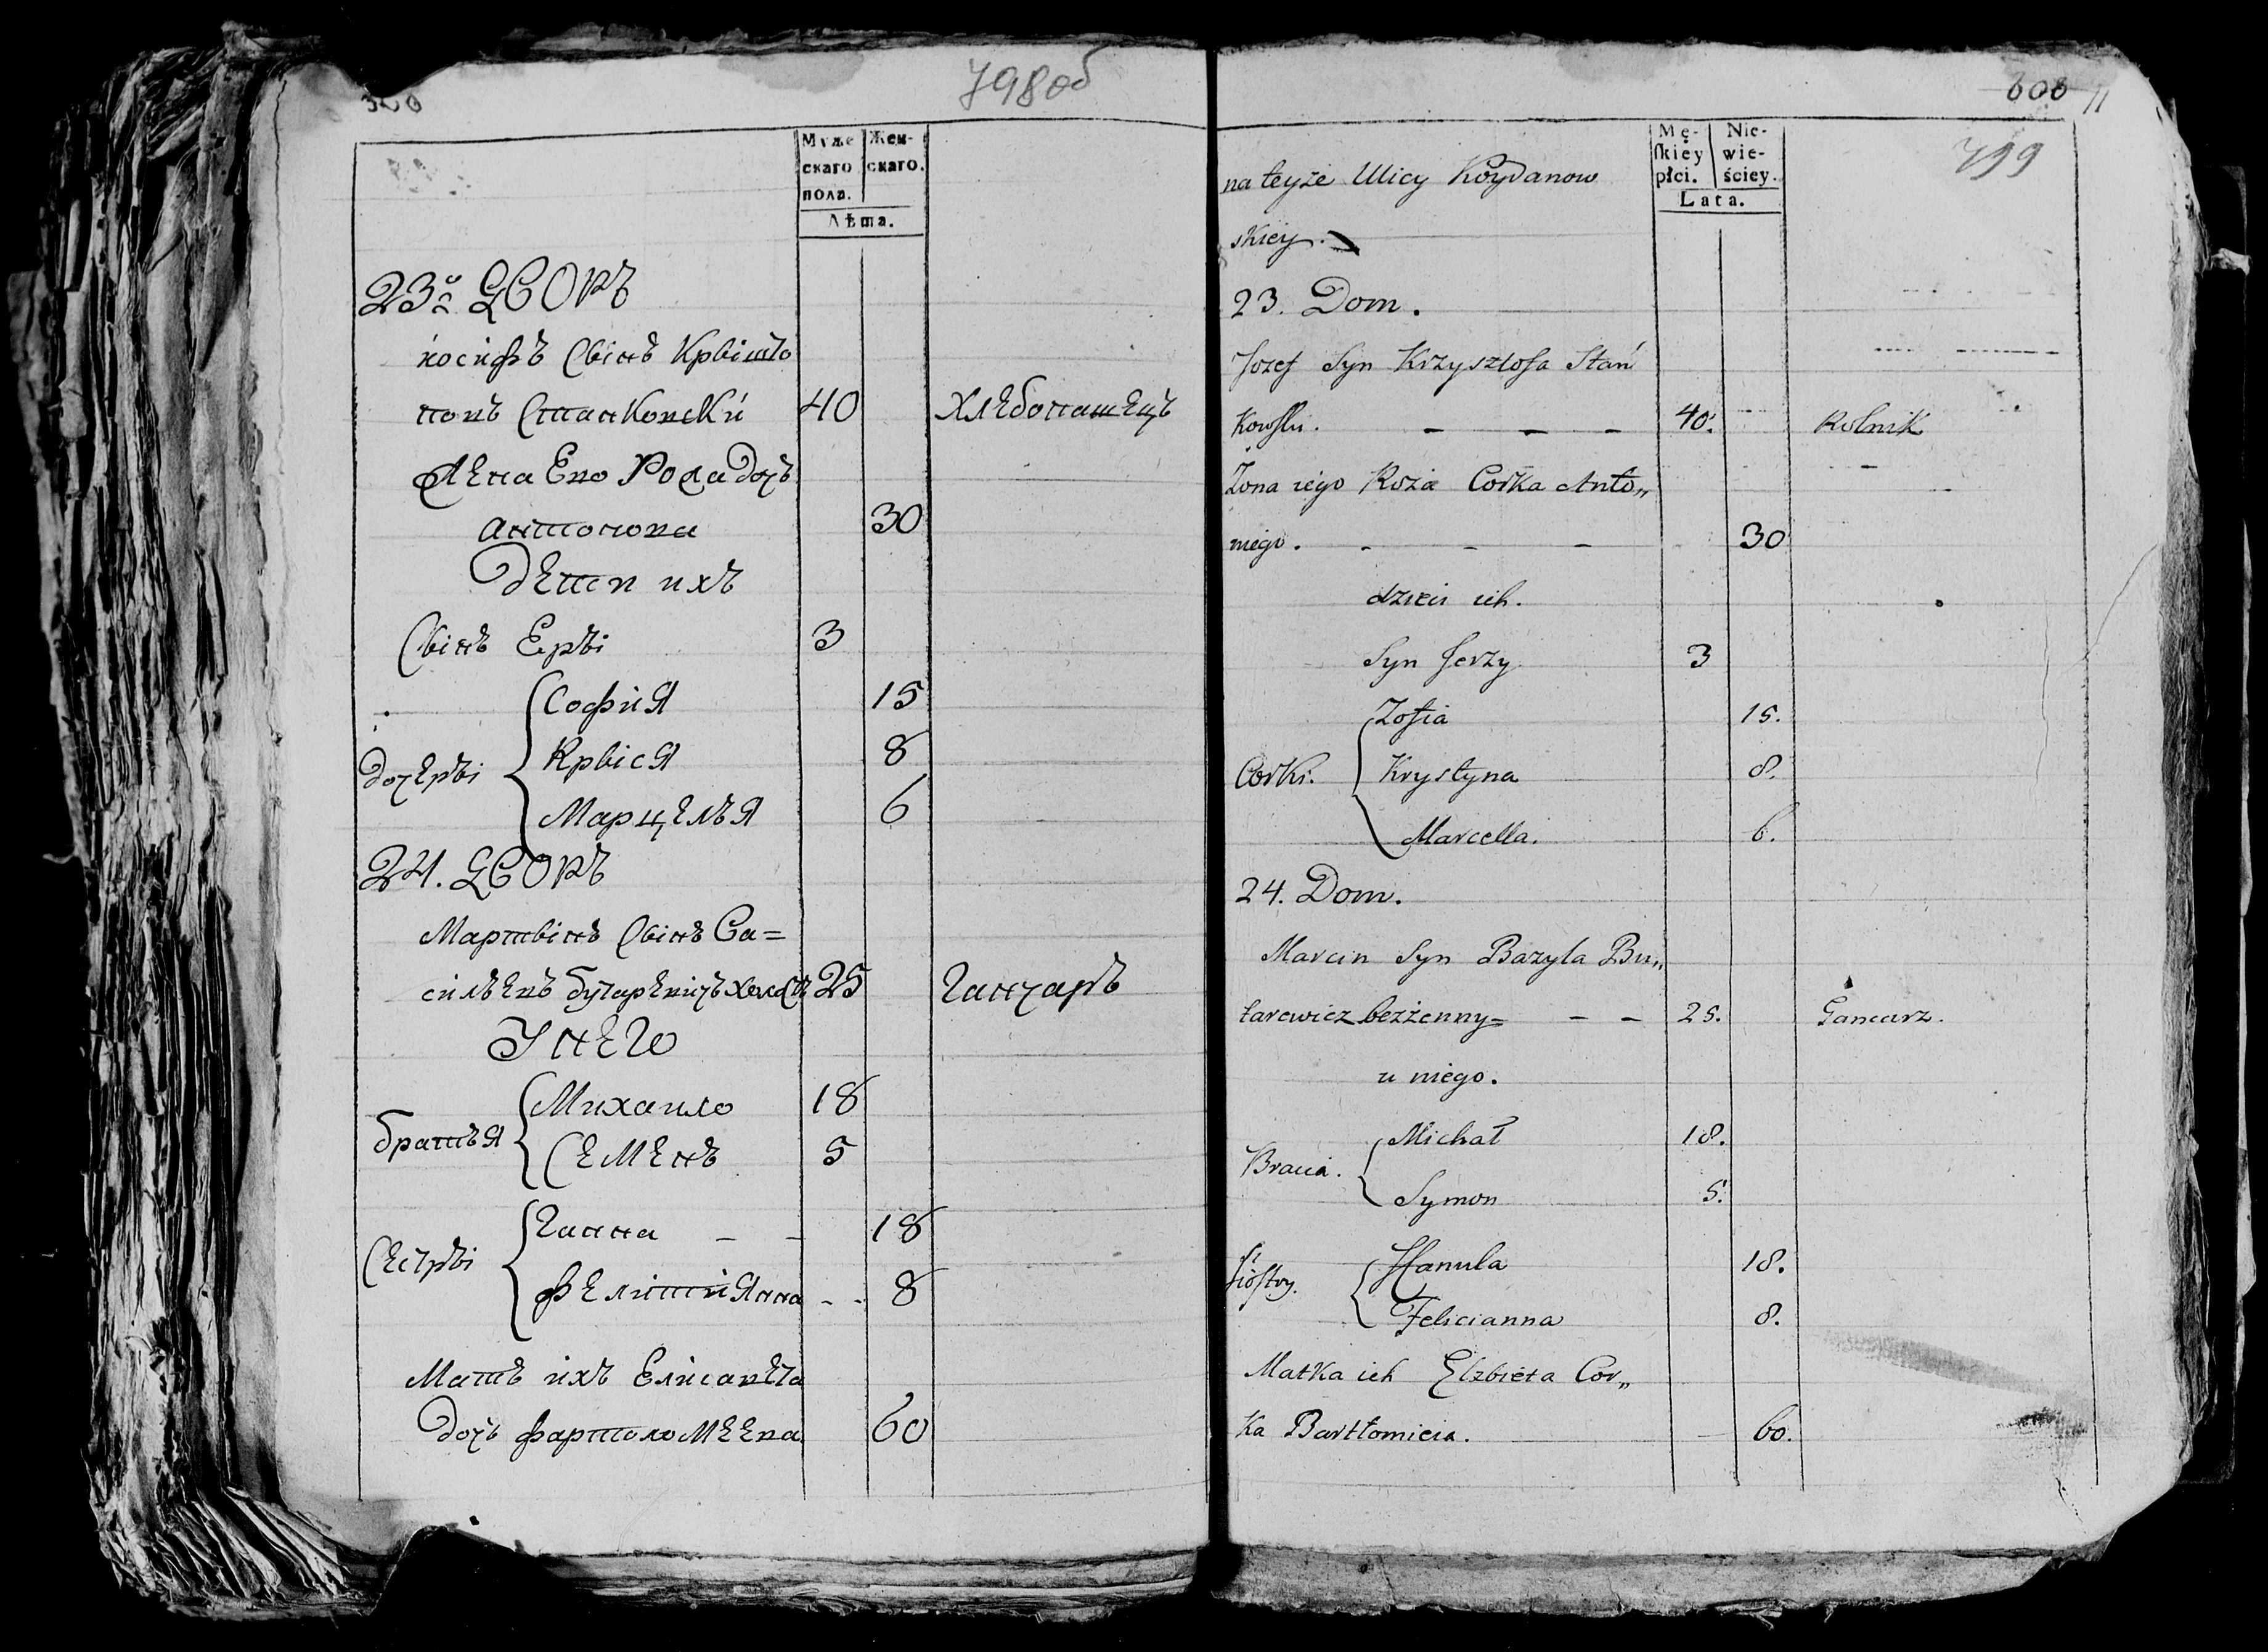 798об
Муже
скаго
пола.
Жен-
скаго.
Лѣта.
23й. ДВОРЪ
иосифъ Сынъ Крышто
повъ Станковски 40 Хлебопашецъ
Жена Ево Роза Дочь
антонова 30
Дети ихъ
Сынъ Еръі 3
Дочеръі
София 15
Крыся 8
Марцелъя 6
24. ДВОРЪ
Мартынъ Сынъ Ва=
сильевъ бутаревичъ холостъ 25 Ганчаръ
У НЕГО
братья
Михаило 18
Семенъ 5
Сестръі
Ганна - - 18
Фелитиянна - - 8
Мать ихъ Елисавета
Дочь фартоломеева 60
600 11
799
na teyże Ulicy Koydanow
skiey.
Mę-
skiéy
płci.
Nie-
wie-
ściey.
Lata.
23. Dom.
Jozef Syn Krzysztofa Stań
kowski. - - - 40. Rolnik
Żona iego Roża Corka Anto„
niego. - - - 30
dzieci ich.
Syn Jerzy 3
Corki.
Zofia 15.
Krystyna 8.
Marcella. 6.
24. Dom.
Marcin Syn Bazyla Bu„
tarewicz bezżenny= - - 25. Gancarz.
u niego.
Bracia.
Michał 18.
Symon 5.
Siostry.
Hanula 18.
Felicianna 8.
Matka ich Elzbieta Cor„
ka Bartłomieia. 60.